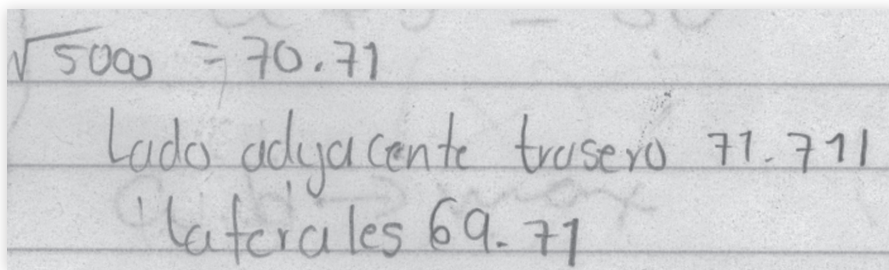 √5000 = 70.71
Lado adyacente trasero 71.711
laterales 69.71